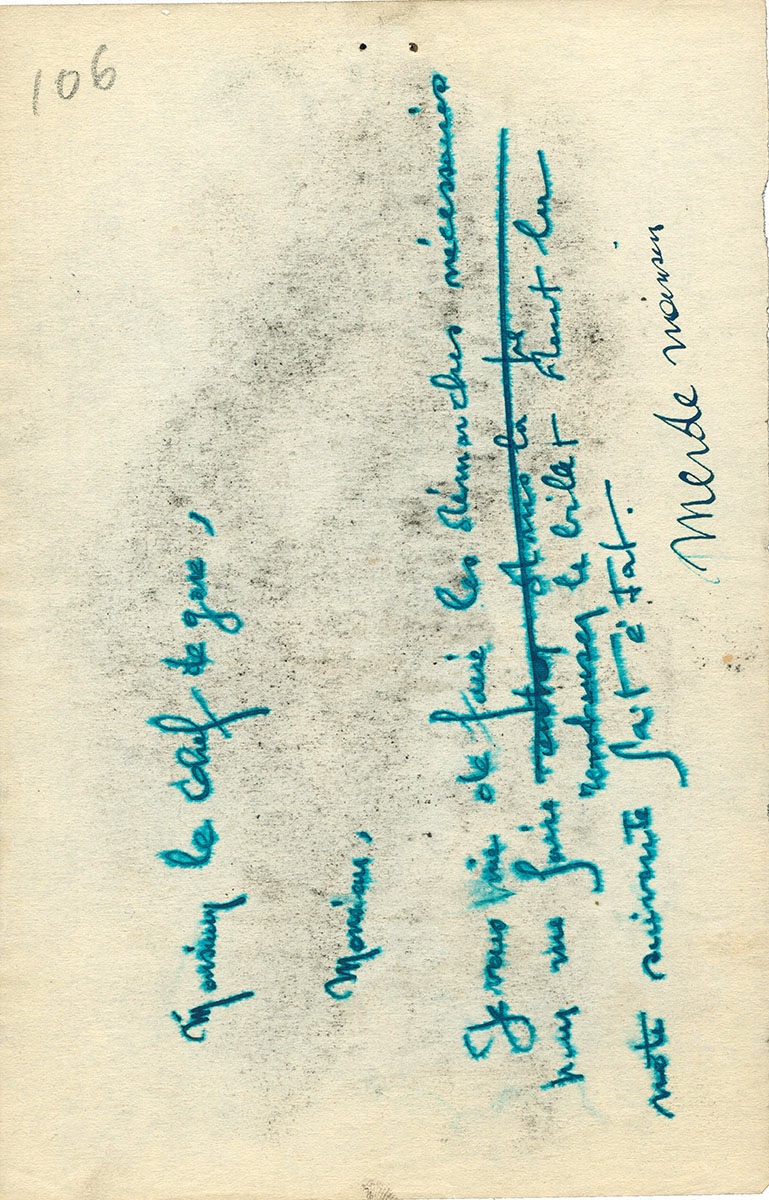 106
Monsieur le Chef de gare,
Monsieur,
Je vous prie de faire les démarches nécessaires
pour me faire rentrer dans la
rembourser le billet dont la
note suivante fait état.
Merde